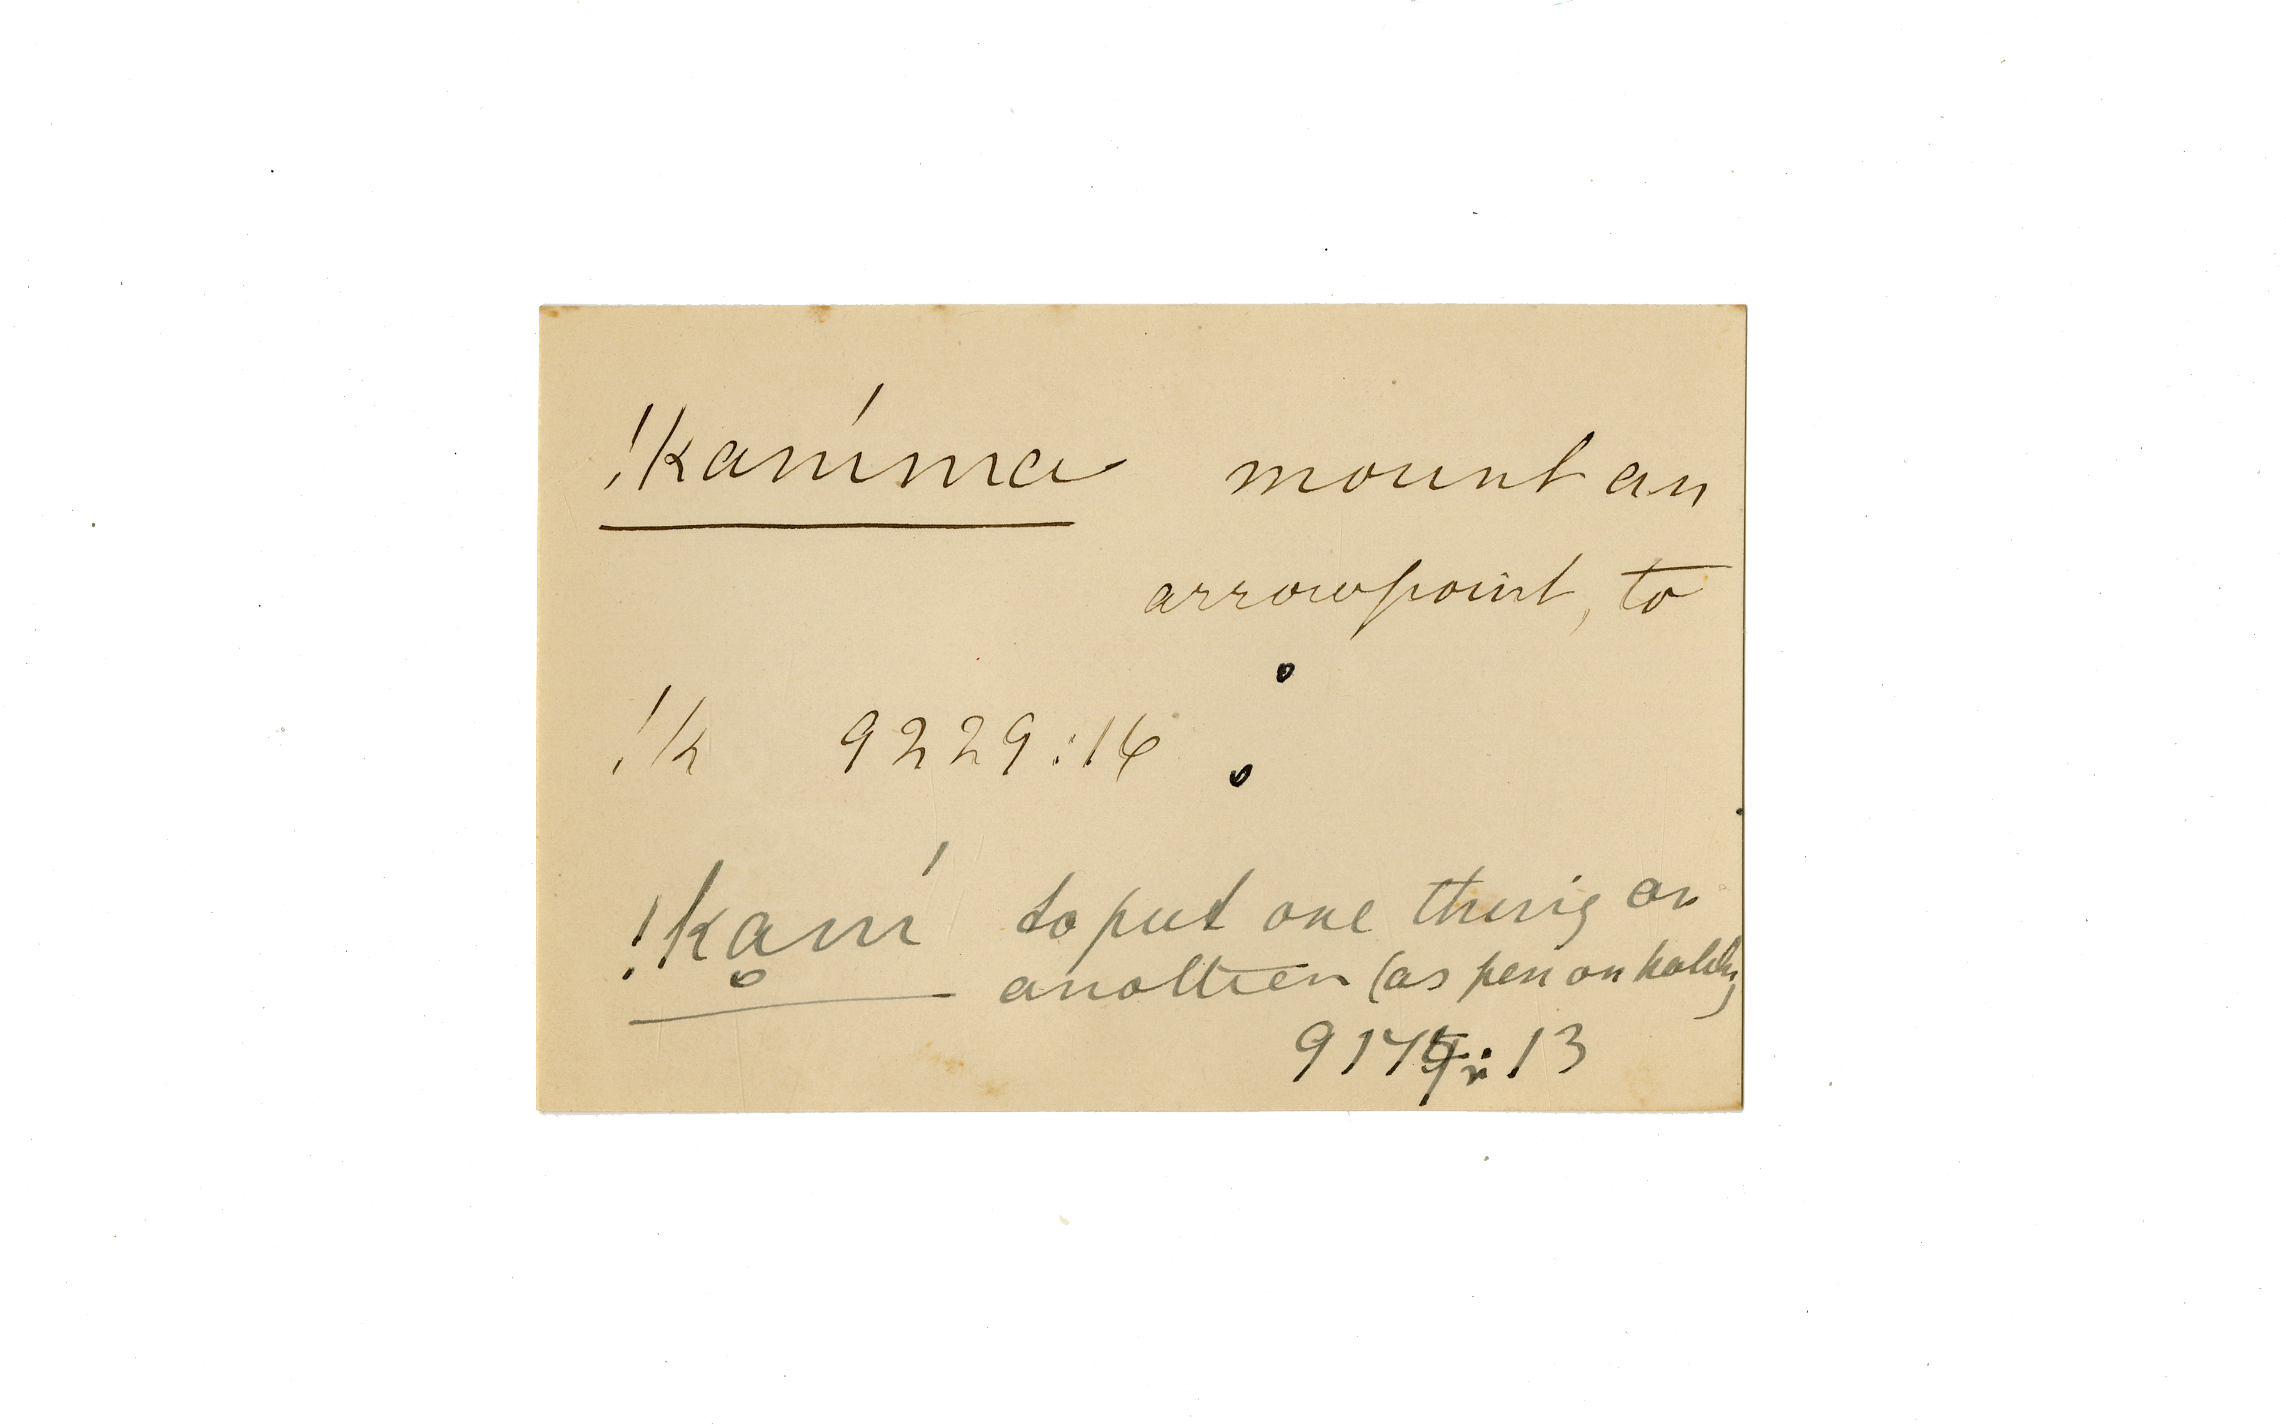 !kam'ma mount an
arrowpoint, to
!k 9229:16
!kam' to put one thing on
another (as pen on holder)
:13